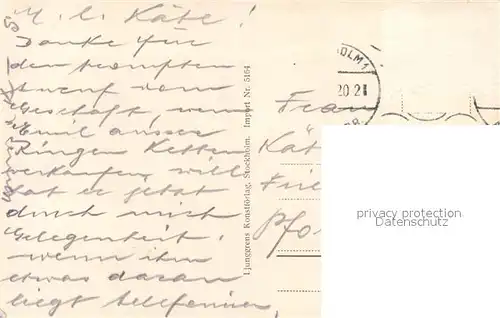 M. l. Käte!
Danke für
den prompten
vom
Geschäft, wenn
Emil ausser
Ringen Ketten
verkaufen will
hat er jetzt
durch mich
Gelegenheit.
wenn ihm
etwas daran
liegt
Ljunggrens Konstförlag, Stockholm. Import Nr. 5164
OLM 1
20.21
Frau
Kät
Frie
Pfo
privacy protection
Datenschutz